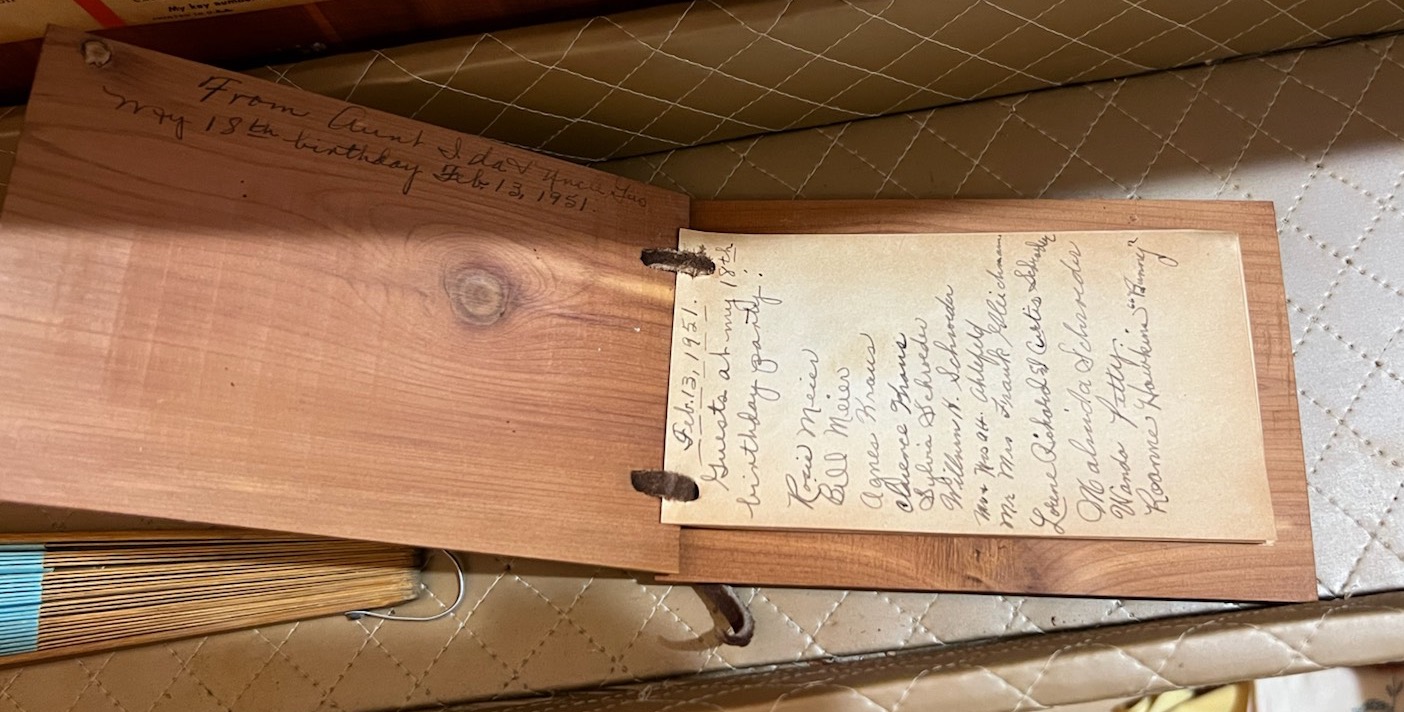 My key number
From Aunt Ida & Uncle Gus
My 18th birthday Feb. 13, 1951.
Feb. 13, 1951.
Guests at my 18th
birthday party:
Rosie Meier
Bill Meier
Agnes Kraus
Clarence Kraus
Sylvia Schroeder
Willmer H. Schroeder
Mr & Mrs AH. Ahlfeld
Mr Mrs Frank Gleichman
Lorene Richard & Curtis
Malinda Schroeder
Wanda Patty
Roanne Hawkins "Bunny"